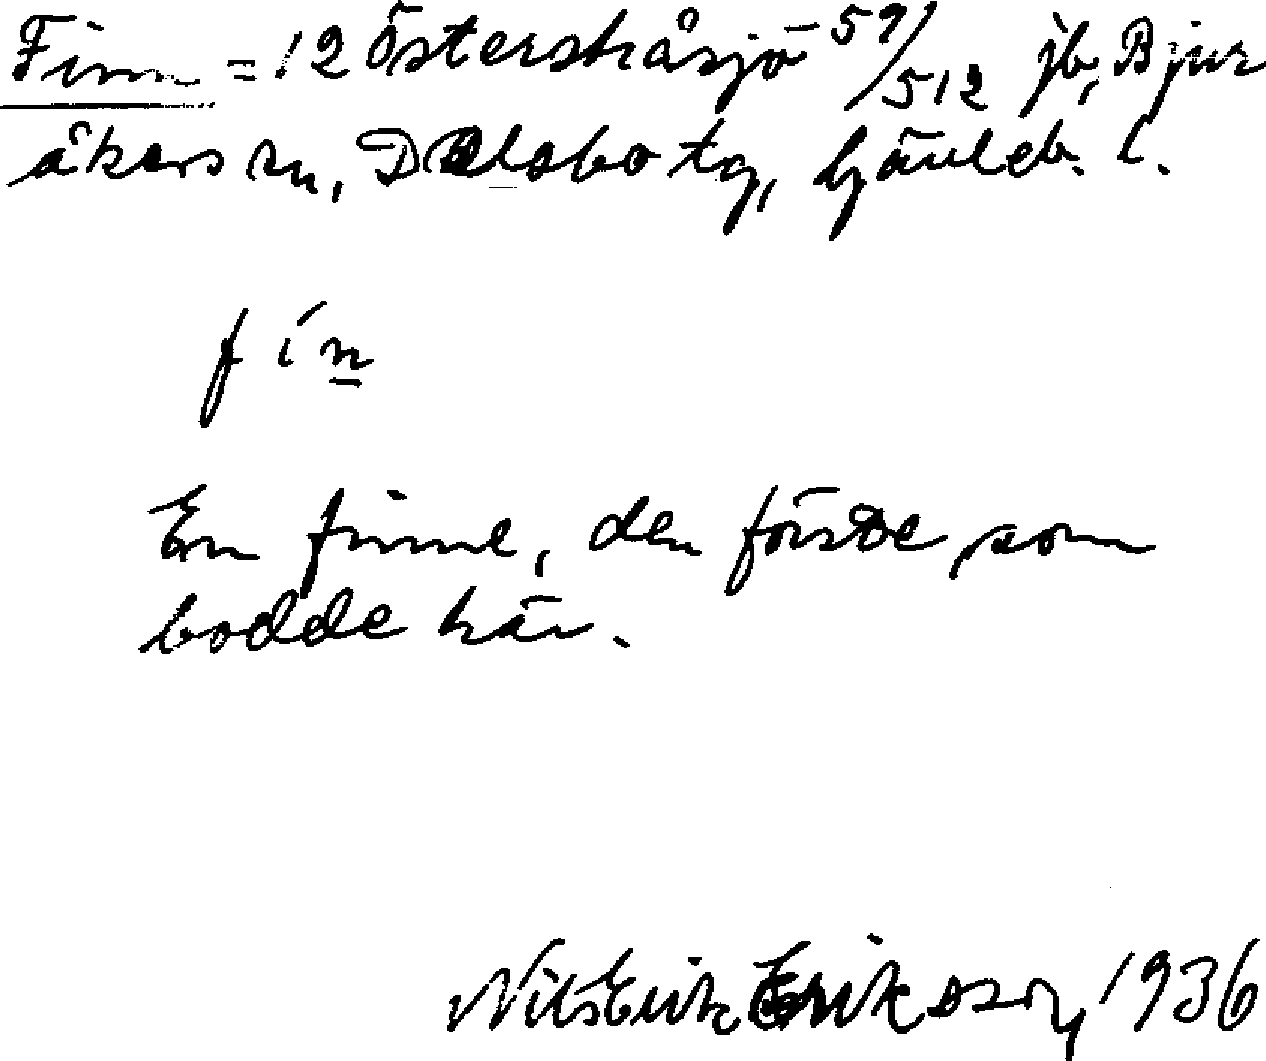 Finn = 12 Österskåsjö 59/512 jb, Bjur
åkers sn, Dellsbo tg, Gävleb. l.
fín
En finne, den förste som
bodde här.
Nils Erik Eriksson, 1936